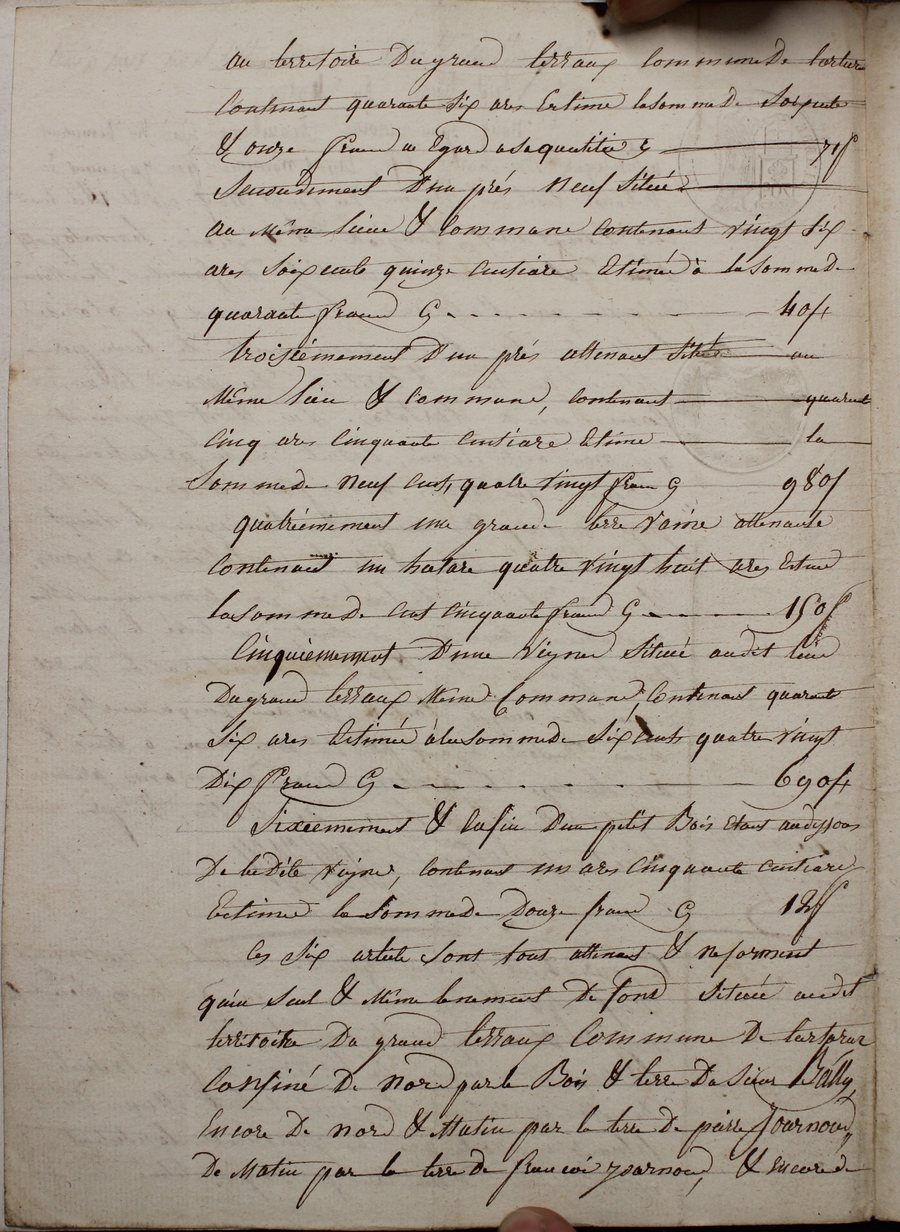 au territoire Du grand terraux Commune De tartara
Contenant quarante Six ares Estimé la somme de Soixente
& onze franc a Egard a sa quantitié C 71f
Secondement D'un prés neuf Situé
au Même lieu & Commune Contenant Vingt Six
ares Soixente quinze Centiare Estimée à la somme de
quarante franc C 40f
troisiémement D'un prés attenant Situé au
Même lieu & Commune, Contenant quarente
Cinq ares Cinquante Centiare Estime la
Somme de neuf Cent, quatre Vingt franc C 980f
quatriémement une grande terre Vaine attenante
Contenant un hectare quatre Vingt huit ares Estimé
la somme de Cent Cinquante franc C 150f
Cinquiémement D'une Vigne Située audit lieu
Du grand terraux Même Commune, Contenant quarante
Six ares Estimée à la somme de Six Cent quatre Vingt
Dix franc C 690f
Sixiémement & Enfin D'un petit Bois Etant audessous
De la Dite Vigne, Contenant un ares Cinquante Centiare
Estimé la Somme de Douze franc C 12f
Ces Six article Sont tous attenant & ne forment
qu'un Seul & Même tenement De fond Situé audit
territoire Du grand terraux Commune De tartaras
Confiné De nord par le Bois & terre Du Sieur Bally,
Encore De nord & Matin par la terre De pierre Journoud,
De Matin par la terre De francoi Journoud, & Encore De